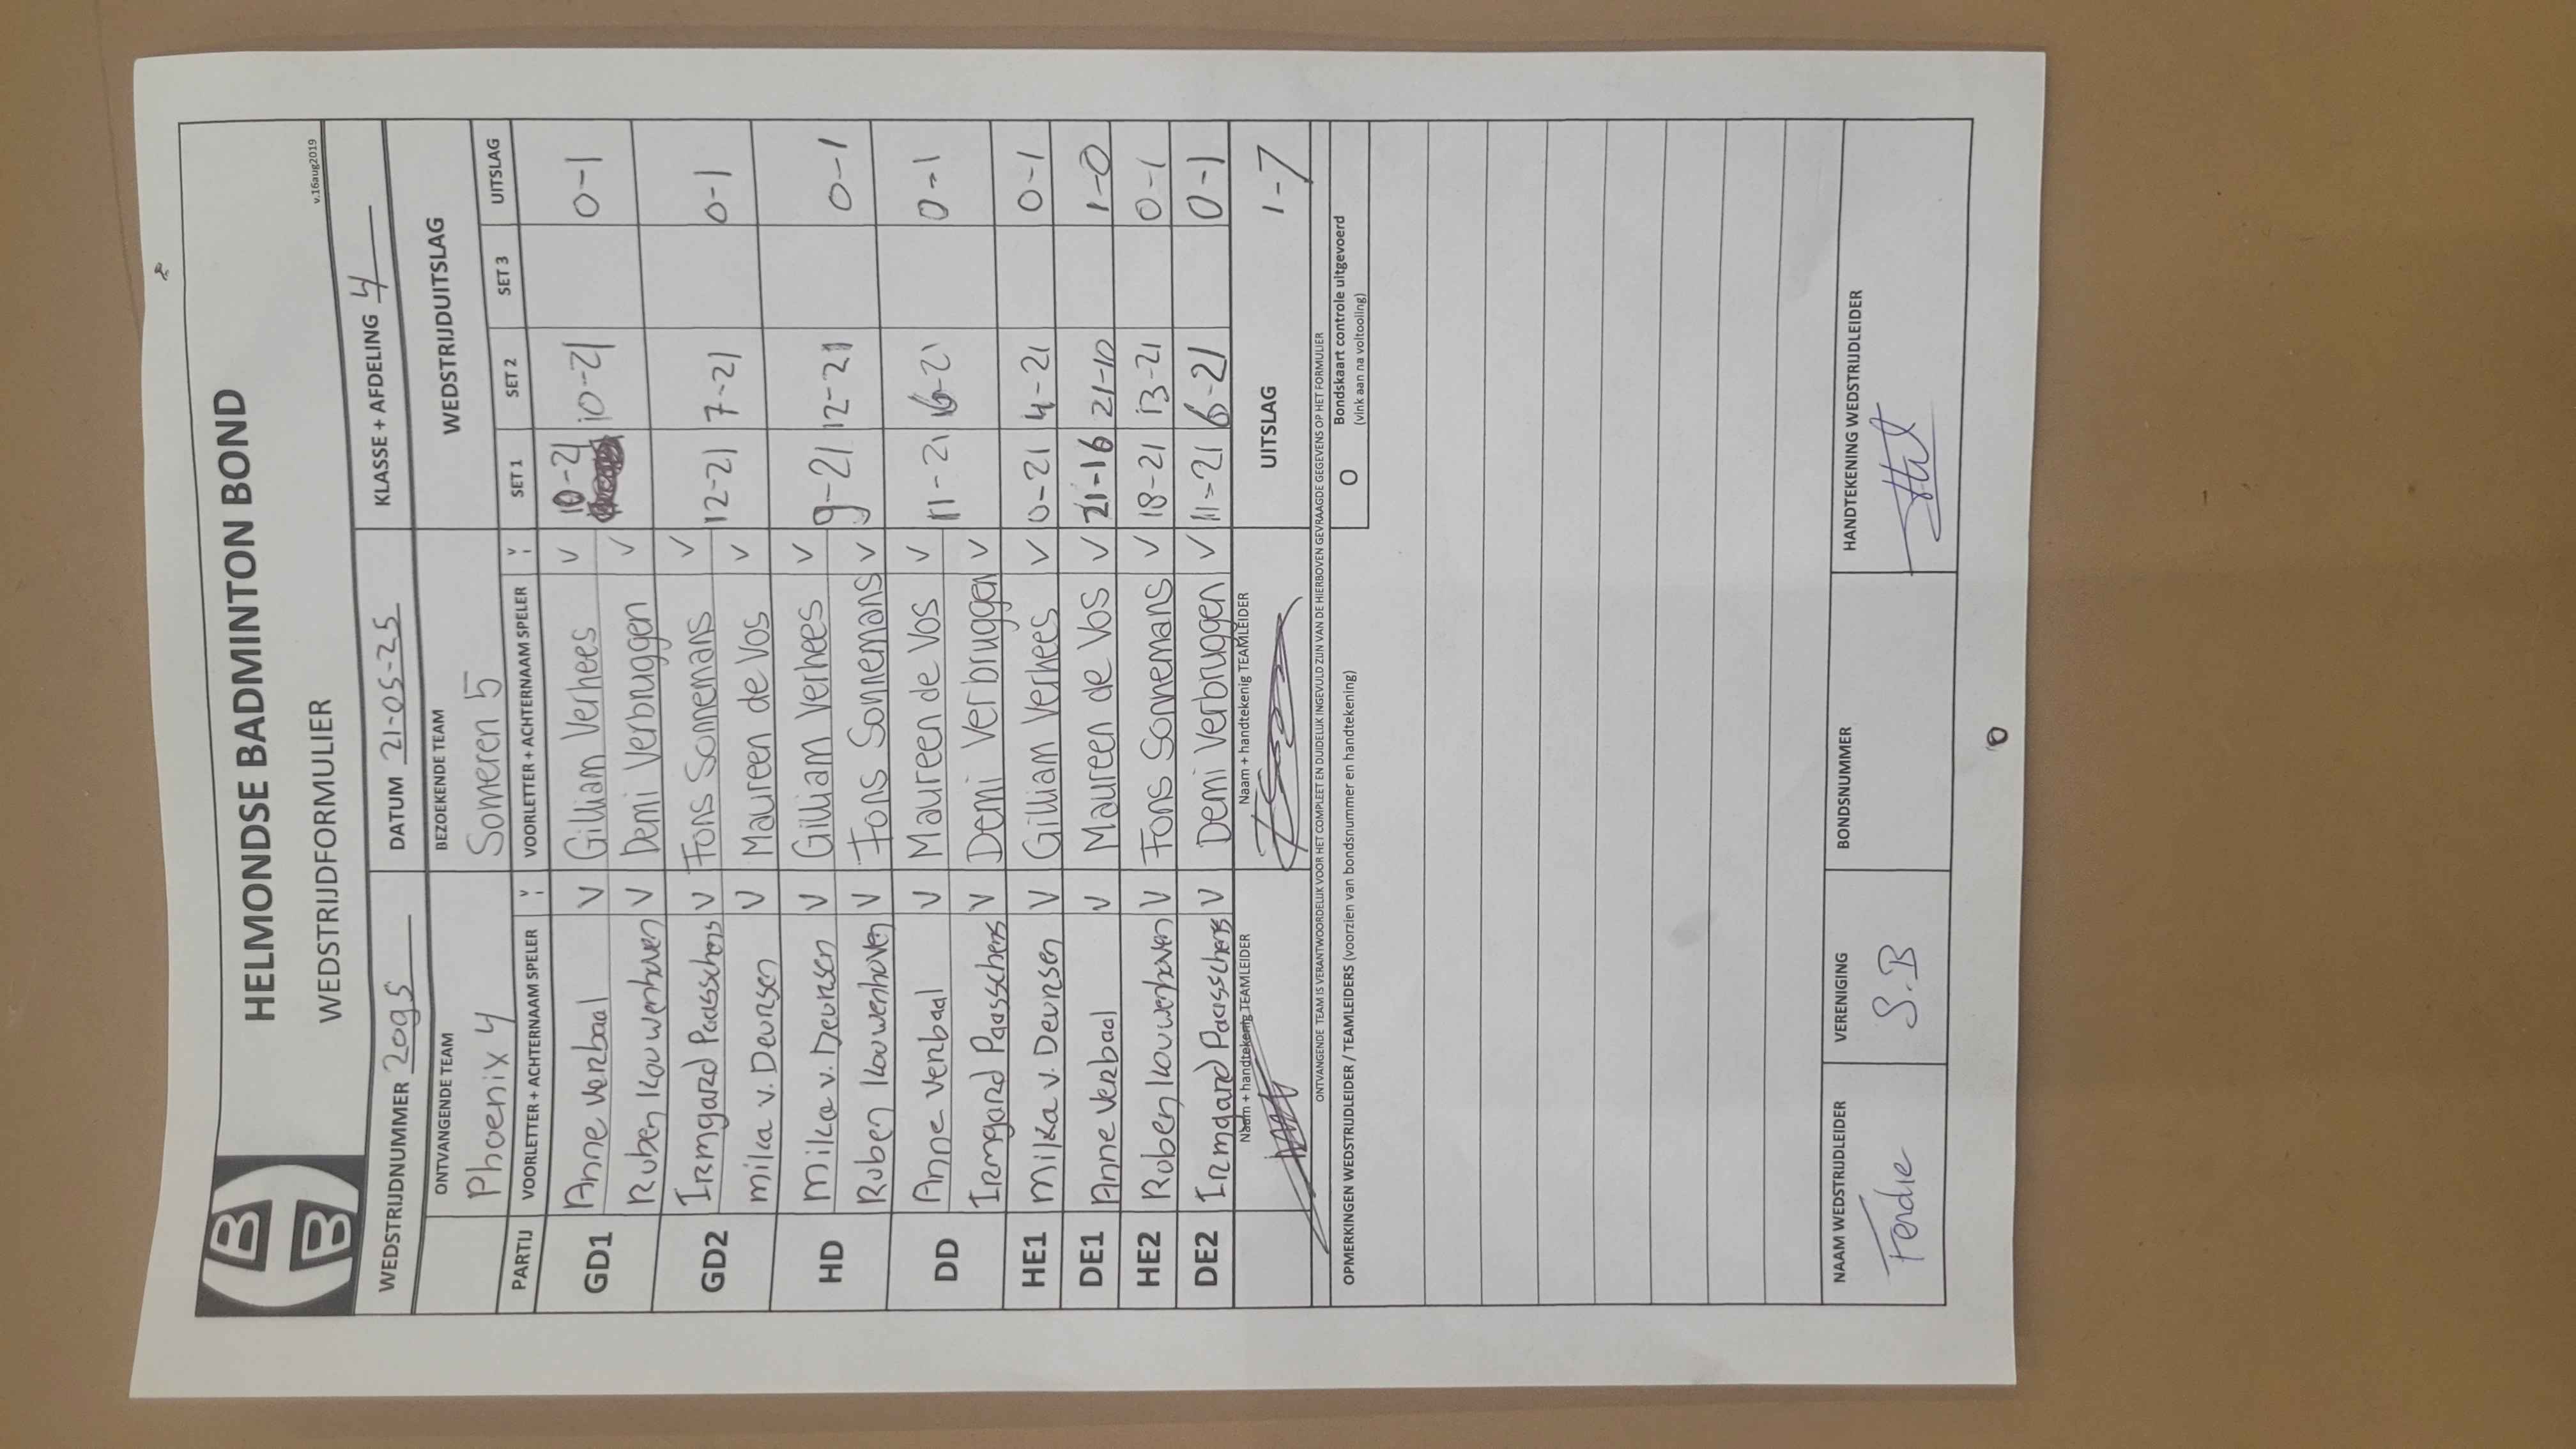 HELMONDSE BADMINTON BOND
WEDSTRIJDFORMULIER
v.16aug2019
WEDSTRIJDNUMMER 20095 DATUM 21-05-25 KLASSE + AFDELING 4
ONTVANGENDE TEAM BEZOEKENDE TEAM WEDSTRIJDUITSLAG
Phoenix 4 Someren 5
PARTIJ VOORLETTER + ACHTERNAAM SPELER V VOORLETTER + ACHTERNAAM SPELER V SET 1 SET 2 SET 3 UITSLAG
GD1 Anne Verbaal V Gilliam Verhees V 10-21 10-21 0-1
Ruben Kouwenhoven V Demi Verbruggen V
GD2 Irmgard Paasschens V Fons Sonnemans V 12-21 7-21 0-1
Milka v. Deursen V Maureen de Vos V
HD Milka v. Deursen V Gilliam Verhees V 9-21 12-21 0-1
Ruben Kouwenhoven V Fons Sonnemans V
DD Anne Verbaal V Maureen de Vos V 11-21 16-21 0-1
Irmgard Paasschens V Demi Verbruggen V
HE1 Milka v. Deursen V Gilliam Verhees V 0-21 4-21 0-1
DE1 Anne Verbaal V Maureen de Vos V 21-16 21-10 1-0
HE2 Ruben Kouwenhoven V Fons Sonnemans V 18-21 13-21 0-1
DE2 Irmgard Paasschens V Demi Verbruggen V 11-21 6-21 0-1
Naam + handtekenig TEAMLEIDER Naam + handtekenig TEAMLEIDER UITSLAG 1-7
ONTVANGENDE TEAM IS VERANTWOORDELIJK VOOR HET COMPLEET EN DUIDELIJK INGEVULD ZIJN VAN DE HIERBOVEN GEVRAAGDE GEGEVENS OP HET FORMULIER
OPMERKINGEN WEDSTRIJDLEIDER / TEAMLEIDERS (voorzien van bondsnummer en handtekening) O Bondskaart controle uitgevoerd
(vink aan na voltooiing)
NAAM WEDSTRIJDLEIDER VERENIGING BONDSNUMMER HANDTEKENING WEDSTRIJDLEIDER
Ferdie S.B